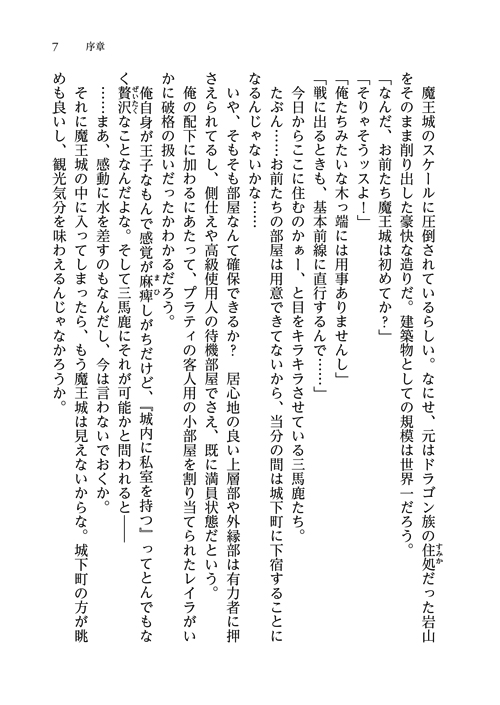 7　序章
魔王城のスケールに圧倒されているらしい。なにせ、元はドラゴン族の住処だった岩山
をそのまま削り出した豪快な造りだ。建築物としての規模は世界一だろう。
「なんだ、お前たち魔王城は初めてか？」
「そりゃそうッスよ！」
「俺たちみたいな木っ端には用事ありませんし」
「戦に出るときも、基本前線に直行するんで……」
今日からここに住むのかぁー、と目をキラキラさせている三馬鹿たち。
たぶん……お前たちの部屋は用意できてないから、当分の間は城下町に下宿することに
なるんじゃないかな……
いや、そもそも部屋なんて確保できるか？　居心地の良い上層部や外縁部は有力者に押
さえられてるし、側仕えや高級使用人の待機部屋でさえ、既に満員状態だという。
俺の配下に加わるにあたって、プラティの客人用の小部屋を割り当てられたレイラがい
かに破格の扱いだったかわかるだろう。
俺自身が王子なもんで感覚が麻痺しがちだけど、『城内に私室を持つ』ってとんでもな
く贅沢なことなんだよな。そして三馬鹿にそれが可能かと問われると――
……まあ、感動に水を差すのもなんだし、今は言わないでおくか。
それに魔王城の中に入ってしまったら、もう魔王城は見えないからな。城下町の方が眺
めも良いし、観光気分を味わえるんじゃなかろうか。